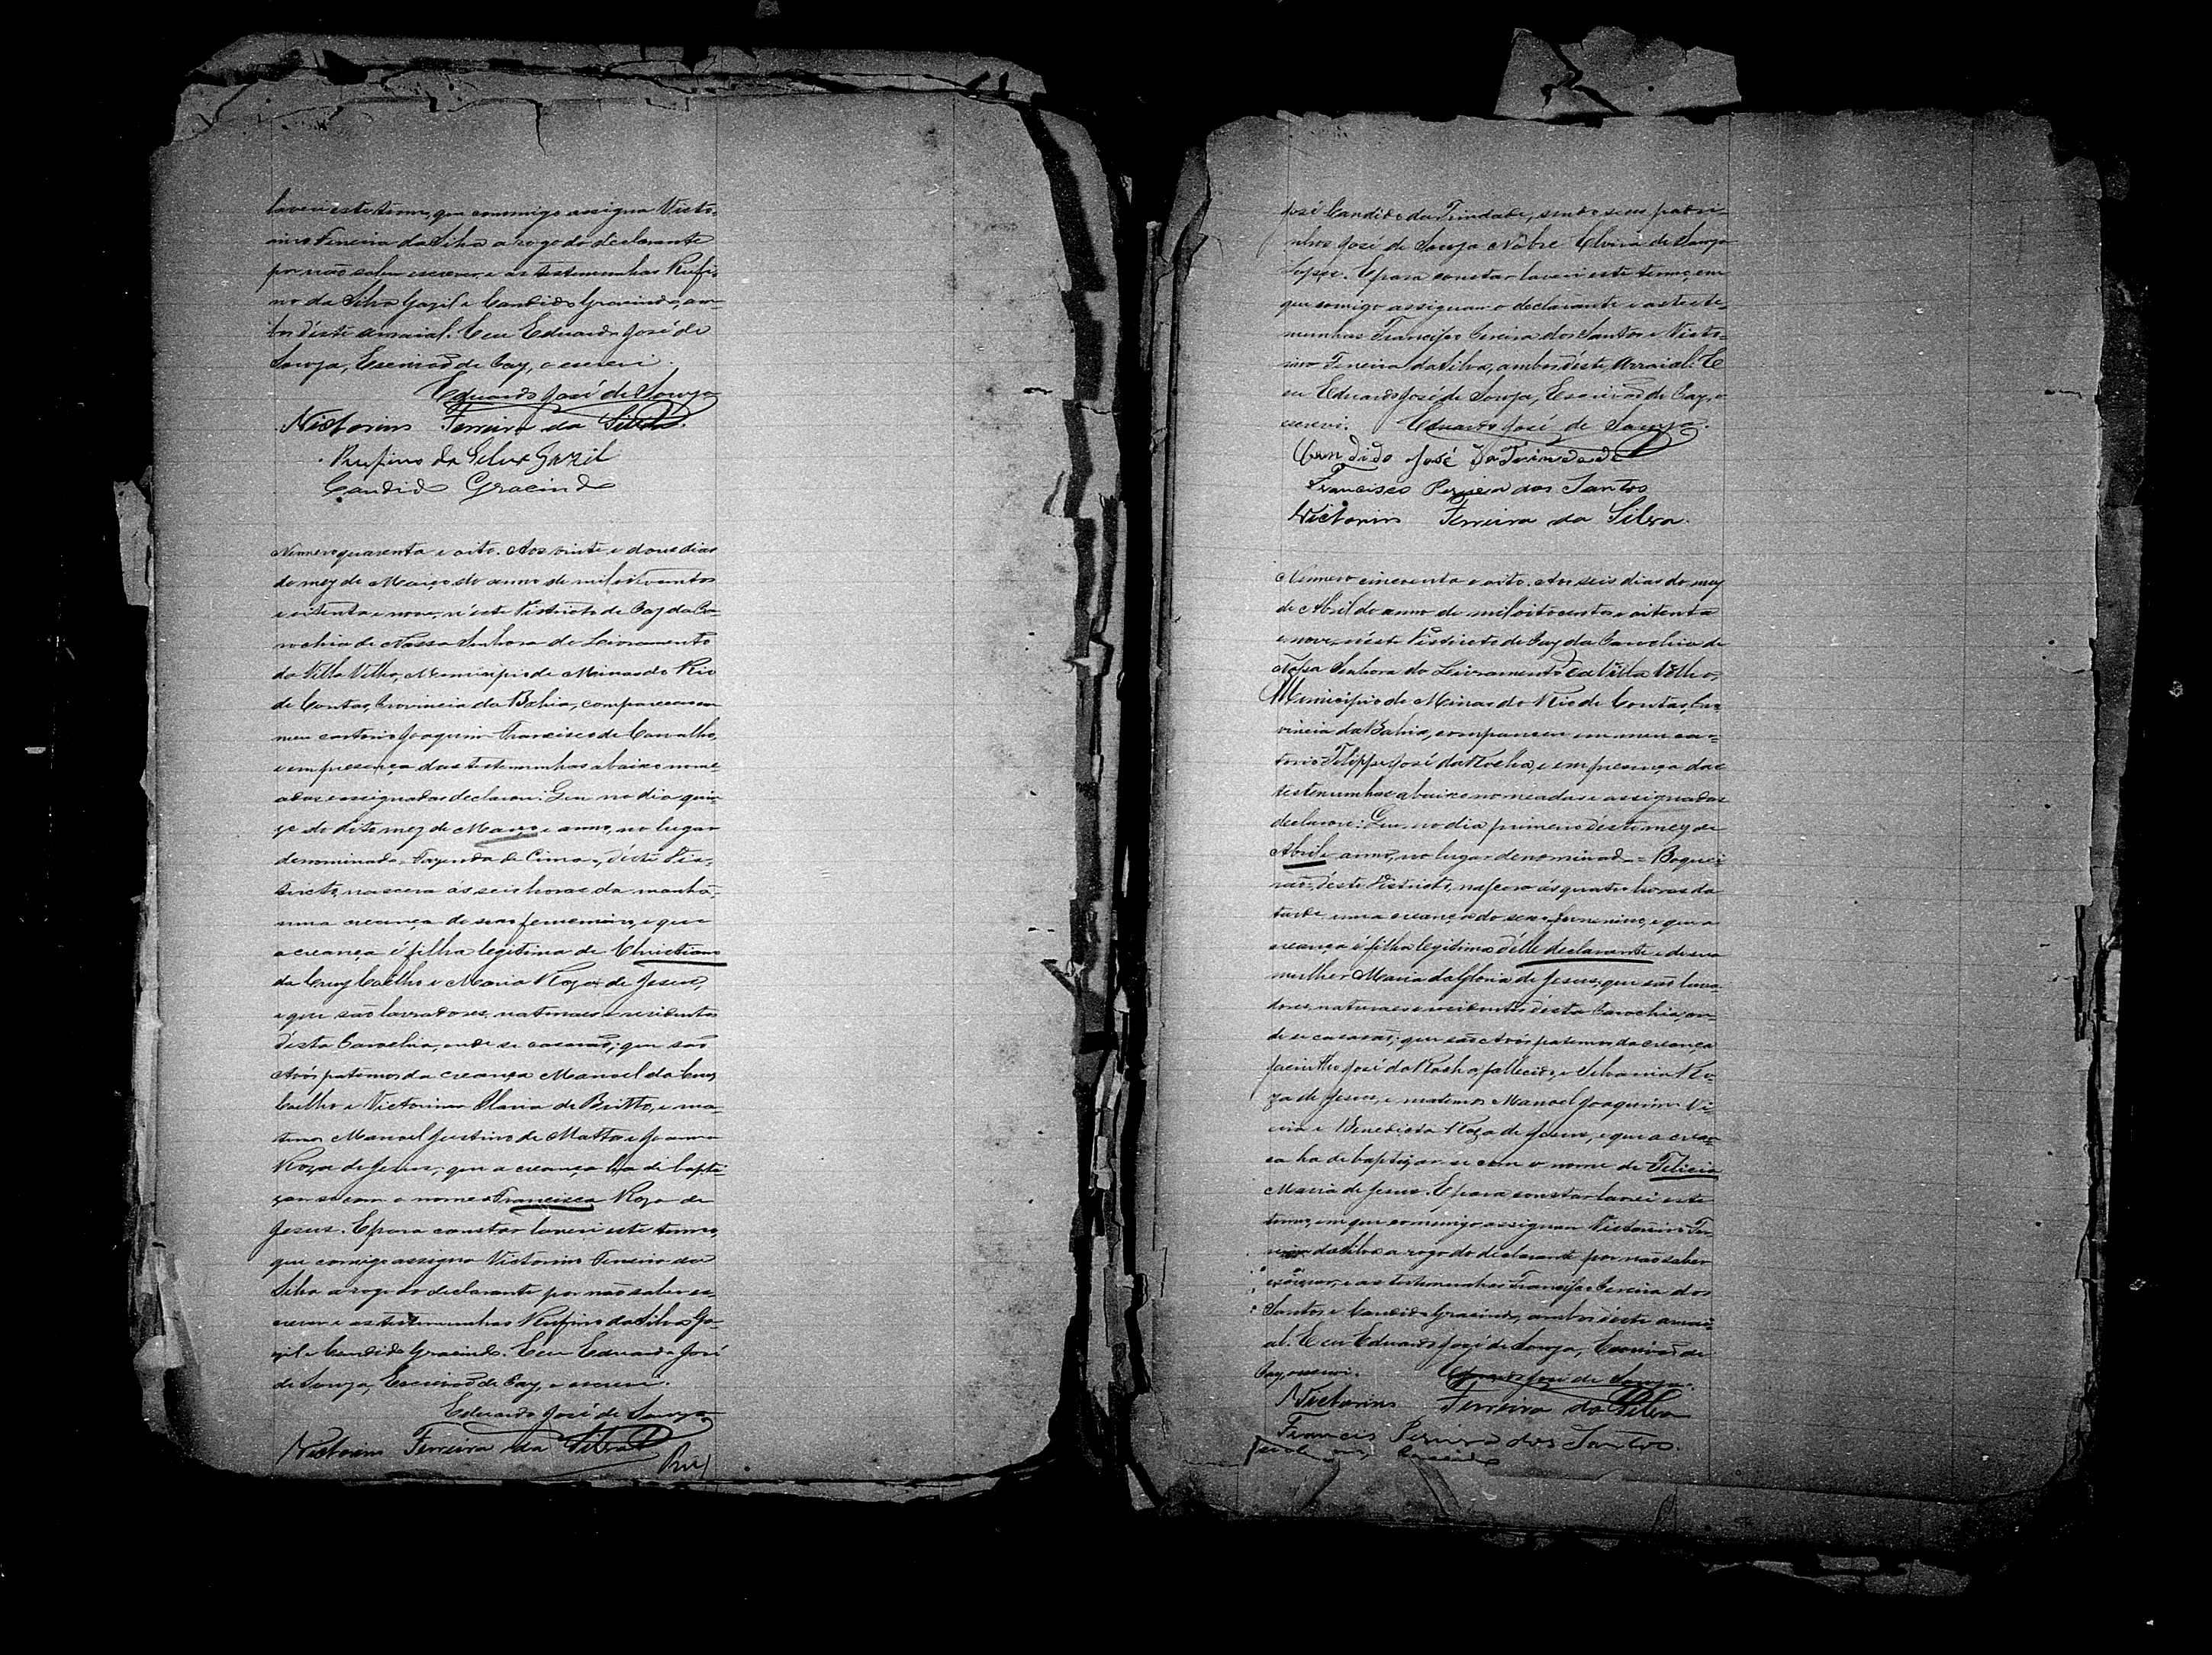 lavrei este termo, que commigo assigna Victo-
rino Ferreira da Silva a rogo do declarante
por não saber escrever e as testemunhas Rufi-
no da Silva Gazil e Candido Gracindo, am-
bos d'este arraial. E eu Eduardo José de
Souza, Escrivão de Paz, o escrevi.
Eduardo José de Souza
Victorino Ferreira da Silva.
Rufino da Silva Gazil
Candido Gracindo
Numero quarenta e oito. Aos vinte e dous dias
do mez de Março do anno de mil oitocentos
e oitenta e nove, n'este Districto de Paz da Pa-
rochia de Nossa Senhora do Livramento
da Villa Velha, Municipio de Minas do Rio
de Contas, Provincia da Bahia, compareceu em
meu cartorio Joaquim Francisco de Carvalho,
e em presença das testemunhas abaixo nome-
adas e assignadas declarou: Que no dia quin-
ze do dito mez de Março e anno, no lugar
denominado Fazenda de Cima, d'este Dis-
tricto, nascera ás seis horas da manhã,
uma creança do sexo femenino, e que
a creança é filha legitima de Christiano
da Cruz Coêlho e Maria Roza de Jesus,
e que são lavradores, naturaes e residentes
d'esta Parochia, onde se casarão; que são
Avós paternos da creança Manoel da Cruz
Coelho e Victorina Maria de Britto, e ma-
ternos Manoel Justino de Mattos e Joanna
Roza de Jesus; que a creança ha de bapti-
zar-se com o nome Francisca Roza de
Jesus. E para constar lavrei este termo,
que comigo assigna Victorino Ferreira da
Silva a rogo do declarante por não saber es-
crever e as testemunhas Rufino da Silva Ga-
zil e Candido Gracindo. E eu Eduardo José
de Souza, Escrivão de Paz, o escrevi.
Eduardo José de Souza
Victorino Ferreira da Silva
José Candido da Trindade, sendo seus padri-
nhos José de Souza Nobre Elvira de Souza
Lopes. E para constar lavrei este termo, em
que comigo assignam o declarante e as teste-
munhas Francisco Pereira dos Santos e Victo-
rino Ferreira da Silva, ambos d'este Arraial. E
eu Eduardo José de Souza, Escrivão de Paz, o
escrevi. Eduardo José de Souza.
Candido José da Trindade
Francisco Pereira dos Santos
Victorino Ferreira da Silva.
Numero cincoenta e oito. Aos seis dias do mez
de Abril do anno de mil oitocentos e oitenta
e nove, n'este Districto de Paz da Parochia de
Nossa Senhora do Livramento da Villa Velha,
Municipio de Minas do Rio de Contas, Pro-
vincia da Bahia, compareceu em meu car-
torio Filippe José da Rocha, e em presença das
testemunhas abaixo nomeadas e assignadas
declarou: Que no dia primeiro d'este mez de
Abril e anno, no lugar denominado = Boquei-
rão, d'este Districto, nascera ás quatro horas da
tarde uma creança do sexo femenino, e que a
creança é filha legitima d'elle declarante e de sua
mulher Maria da Gloria de Jesus, que são lavra-
dores, naturaes e residentes d'esta Parochia, on-
de se casarão; que são Avós paternos da creança
Jacintho José da Rocha, fallecido, e Silvania Ro-
za de Jesus, e maternos Manoel Joaquim Vi-
eira e Benedicta Roza de Jesus, e que a crean-
ça ha de baptizar-se com o nome de Felicia
Maria de Jesus. E para constar lavrei este
termo, em que commigo assignam Victorino Fer-
reira da Silva a rogo do declarante por não saber
escrever, e as testemunhas Francisco Pereira dos
Santos e Candido Gracindo, ambos d'este arrai-
al. E eu Eduardo José de Souza, Escrivão de
Paz, o escrevi. Eduardo José de Souza.
Victorino Ferreira da Silva
Francis Pereira dos Santos.